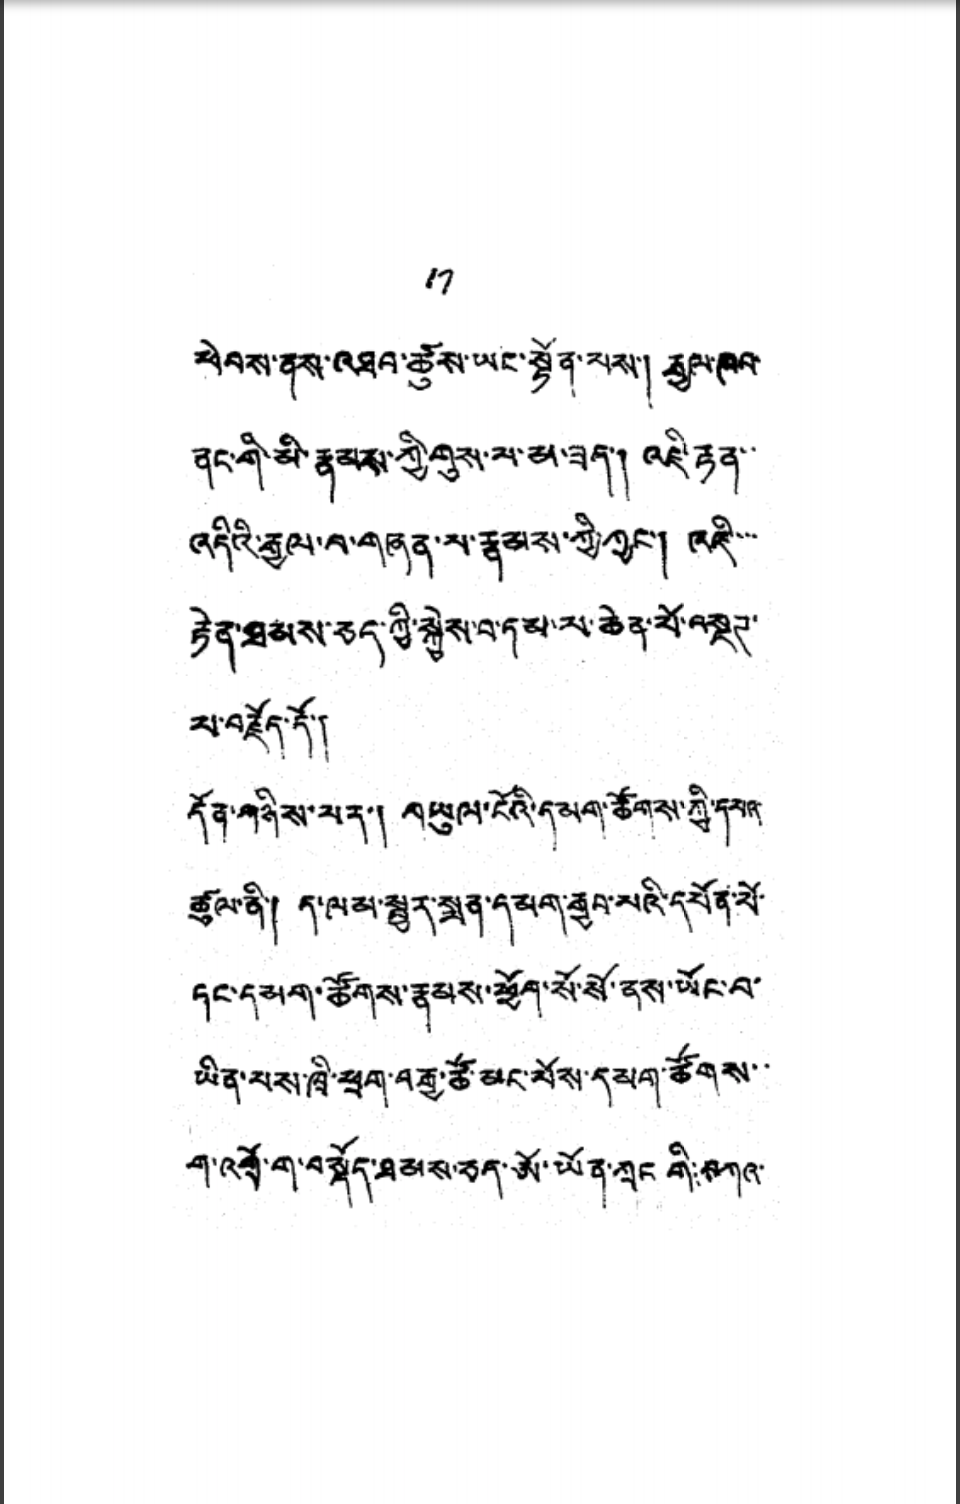 17
ཕེབས་ནས་འཐབ་ཚུས་ཡང་སྟོན་པས། རྒྱལ་ཁབ་
ནང་གི་མི་རྣམས་ཀྱི་གུས་པ་མ་ཟད། འཇི་རྟེན་
འདིའི་རྒྱལ་བ་གཞན་པ་རྣམས་ཀྱི་ཀྱང་། འཇི་
རྟེན་ཐམས་ཅད་ཀྱི་སྐྱེས་བ་དམ་པ་ཆེན་པོ་བསྔད་
པ་བརྗོད་དོ།
དོན་གཉིས་པར། གཡུལ་ངོའི་དམག་ཚོགས་ཀྱི་དཔའ་
ཚུལ་ནི། ད་ལམ་སྦྱར་སྨན་དམག་རྒྱབ་པའི་དཔོན་པོ་
དང་དམག་ཚོགས་རྣམས་ཕྱོག་སོ་སོ་ནས་ཡོང་བ་
ཡིན་པས་ཁྲི་ཕྲག་བརྒྱ་ཚོ་མང་པོས་དམག་ཚོགས་
ག་འགྲོ་ག་བསྡོད་ཐམས་ཅད་ཨོ་ཡོན་ཀླང་གི་བཀའ་